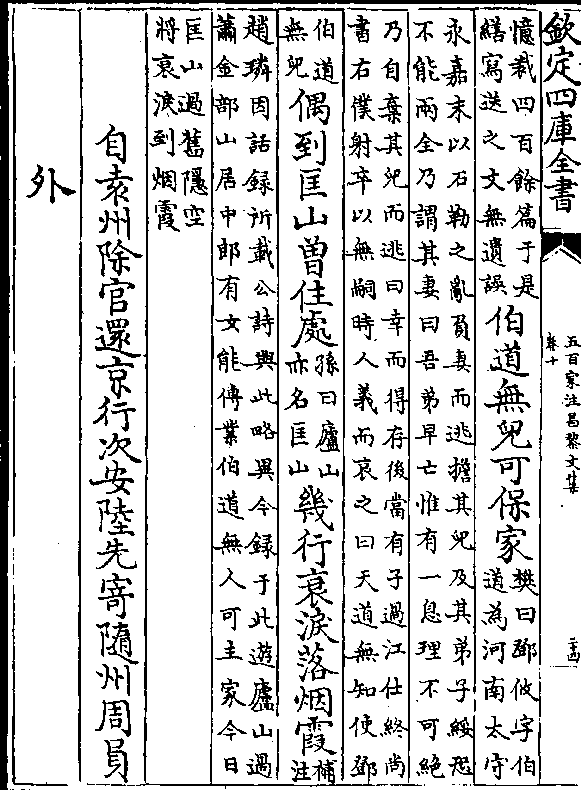 欽定四庫全書
五百家注昌黎文集
卷十
二十四
憶載四百餘篇于是
繕寫送之文無遺誤
伯道無兒可保家
樊曰鄧攸字伯
道為河南太守
永嘉末以石勒之亂負妻而逃擔其兒及其弟子綏恐
不能兩全乃謂其妻曰吾弟早亡惟有一息理不可絕
乃自棄其兒而逃曰幸而得存後當有子過江仕終尚
書右僕射卒以無嗣時人義而哀之曰天道無知使鄧
伯道
無兒
偶到匡山曽住處
孫曰廬山
亦名匡山
幾行衰淚落烟霞
補
注
趙璘因話録所載公詩與此略異今録于此遊廬山過
蕭金部山居中郎有女能傳業伯道無人可主家今日
匡山過舊隱空
將哀淚到烟霞
自袁州除官還京行次安陸先寄隨州周員
外